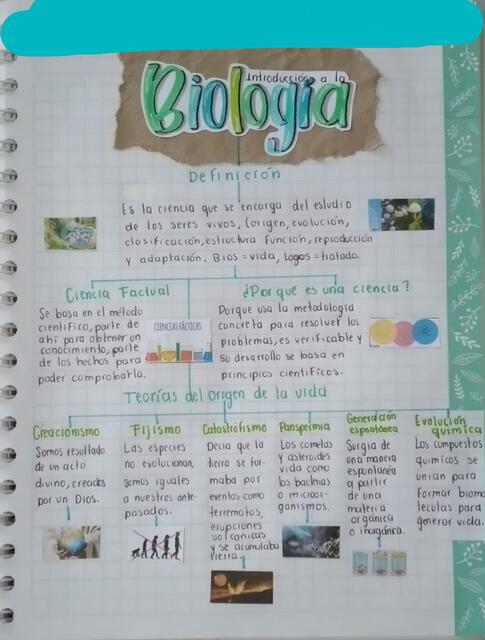 Introducción a la
Biología
Definición
Es la ciencia que se encarga del estudio
de los seres vivos, (origen, evolución,
clasificación, estructura función, reproducción
y adaptación. Bios = vida, Logos = tratado.
Ciencia Factual
Se basa en el método
científico, parte de
ahí para obtener un
conocimiento, parte
de los hechos para
poder comprobarla.
CIENCIAS FÁCTICAS
¿Por qué es una ciencia?
Porque usa la metodología
concreta para resolver los
problemas, es verificable y
su desarrollo se basa en
principios científicos.
Teorías del origen de la vida
Creacionismo
Somos resultado
de un acto
divino, creados
por un Dios.
Fijismo
Las especies
no evolucionan,
somos iguales
a nuestros ante-
pasados.
Catastrofismo
Decía que la
tierra se for-
maba por
eventos como
terremotos,
erupciones
volcánicas
y se acumulaba
tierra.
Panspermia
Los cometas
y asteroides
vida como
las bacterias
o microor-
ganismos.
Generación
espontánea
Surgía de
una manera
espontánea
a partir
de una
materia
orgánica
o inorgánica.
Evolución
química
Los compuestos
químicos se
unían para
formar biomo
leculas para
generar vida.